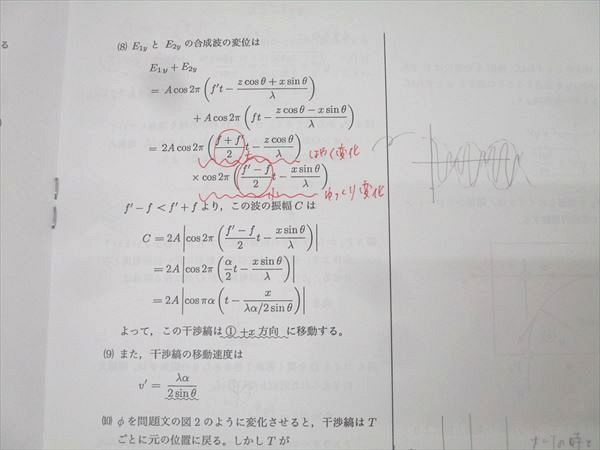 る
(8) E₁y と E₂y の合成波の変位は
E₁y + E₂y
= A cos 2π ( f't − (z cos θ + x sin θ)/λ )
+ A cos 2π ( ft − (z cos θ − x sin θ)/λ )
= 2A cos 2π ( (f + f')/2 t − (z cos θ)/λ ) はやく変化
× cos 2π ( (f' − f)/2 t − (x sin θ)/λ ) ゆっくり変化
f' − f < f' + f より，この波の振幅 C は
C = 2A | cos 2π ( (f' − f)/2 t − (x sin θ)/λ ) |
= 2A | cos 2π ( α/2 t − (x sin θ)/λ ) |
= 2A | cos πα ( t − x/(λα/2 sin θ) ) |
よって，この干渉縞は ① +x 方向 に移動する。
(9) また，干渉縞の移動速度は
v' = λα/(2 sin θ)
(10) φ を問題文の図 2 のように変化させると，干渉縞は T
ごとに元の位置に戻る。しかし T が